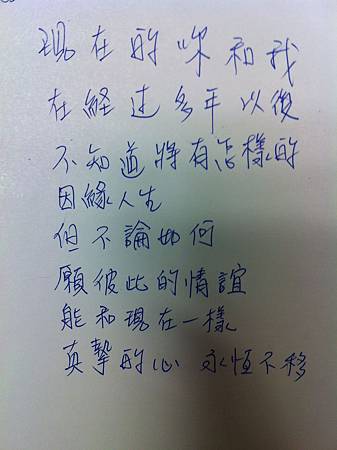 現在的你和我
在経过多年以後
不知道将有怎樣的
因緣人生
但不論如何
願彼此的情誼
能和現在一樣
真摯的心 永恒不移